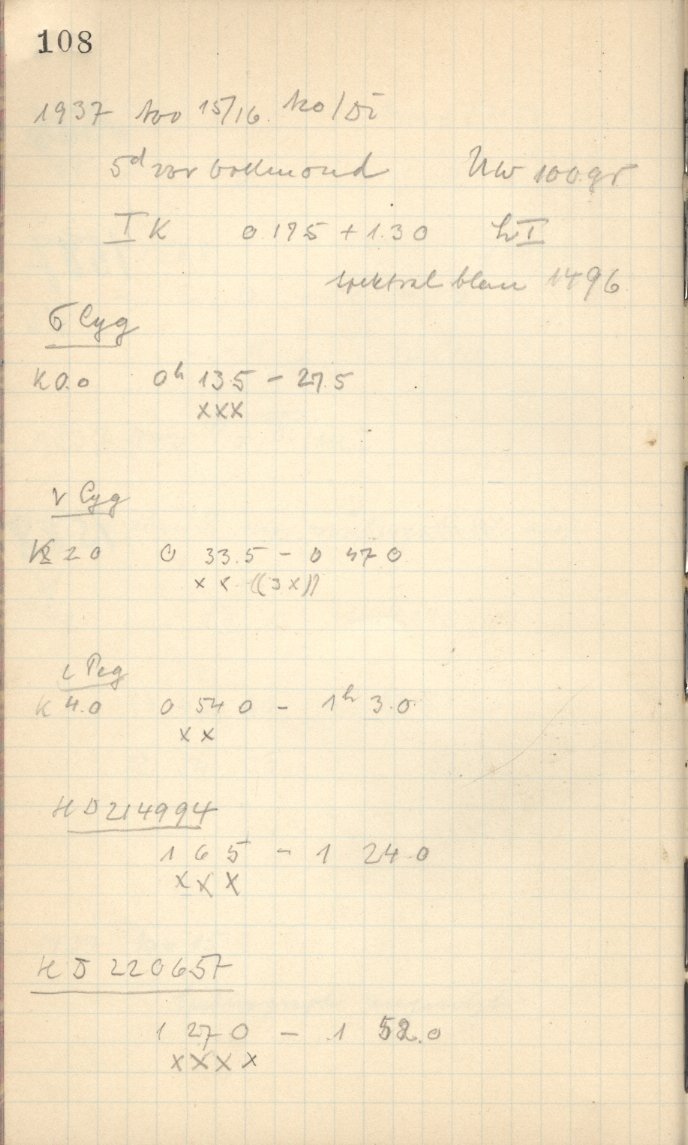 108
1937 Nov 15/16. Mo/Di
5d vor Vollmond NW 100gr
I K 0.175 + 1.30 hI
Spektral blau 1496
σ Cyg
K 0.0 0h 13.5 - 27.5
xxx
ν Cyg
K 2 0 0 33.5 - 0 47 0
x x ((3x))
ι Peg
K 4.0 0 54 0 - 1h 3.0
x x
HD 214994
1 6 5 - 1 24.0
x x x
HD 220657
1 27 0 - 1 52.0
x x x x